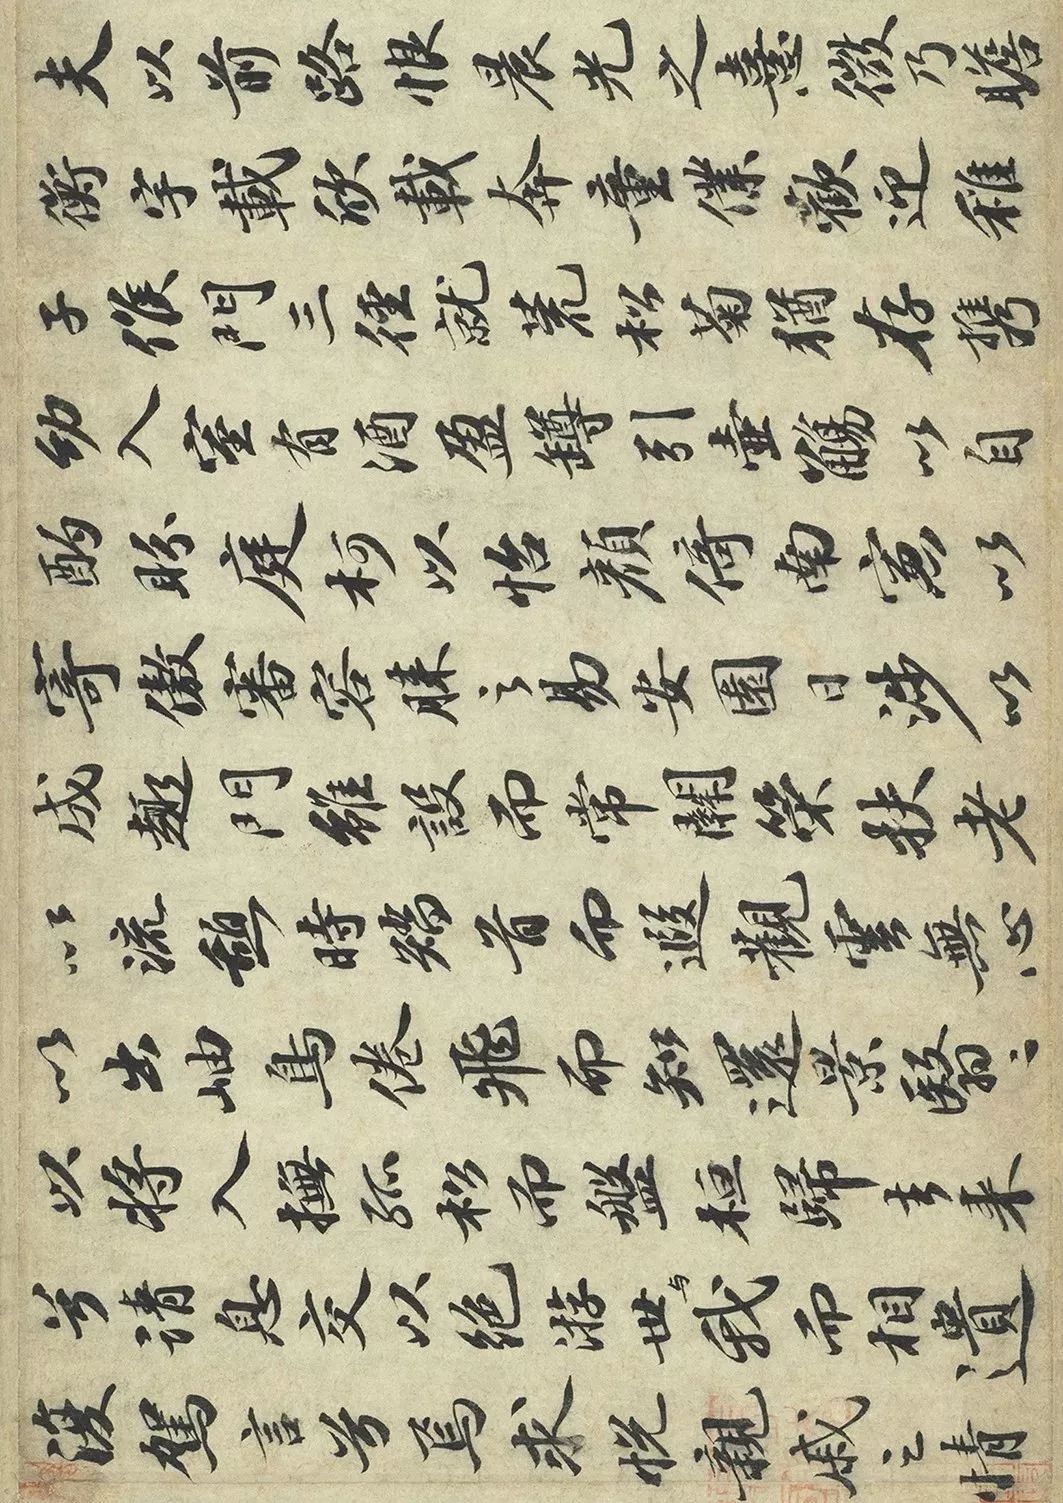 夫以前路恨晨光之熹微乃瞻
衡宇載欣載奔童僕歡迎稚
子候門三徑就荒松菊猶存携
幼入室有酒盈罇引壺觴以自
酌眄庭柯以怡顏倚南窓以
寄傲審容膝之易安園日涉以
成趣門雖設而常關策扶老
以流憩時矯首而遐觀雲無心
以出岫鳥倦飛而知還景翳〻
以將入撫孤松而盤桓歸去来
兮請息交以絶游世与我而相遺
復駕言兮焉求悅親戚之情